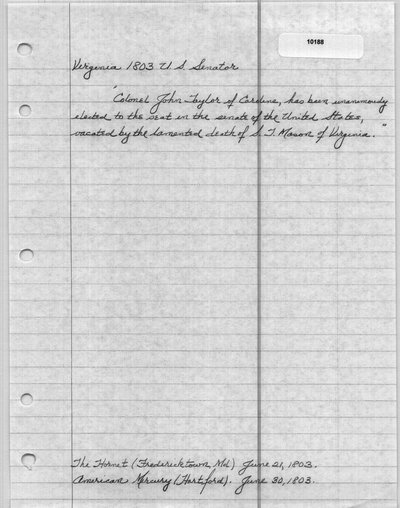 10188
Virginia 1803 U.S. Senator
"Colonel John Taylor of Caroline, has been unanimously
elected to the seat in the senate of the United States,
vacated by the lamented death of S. T. Mason of Virginia."
The Hornet (Fredericktown, Md) June 21, 1803.
American Mercury (Hartford). June 30, 1803.